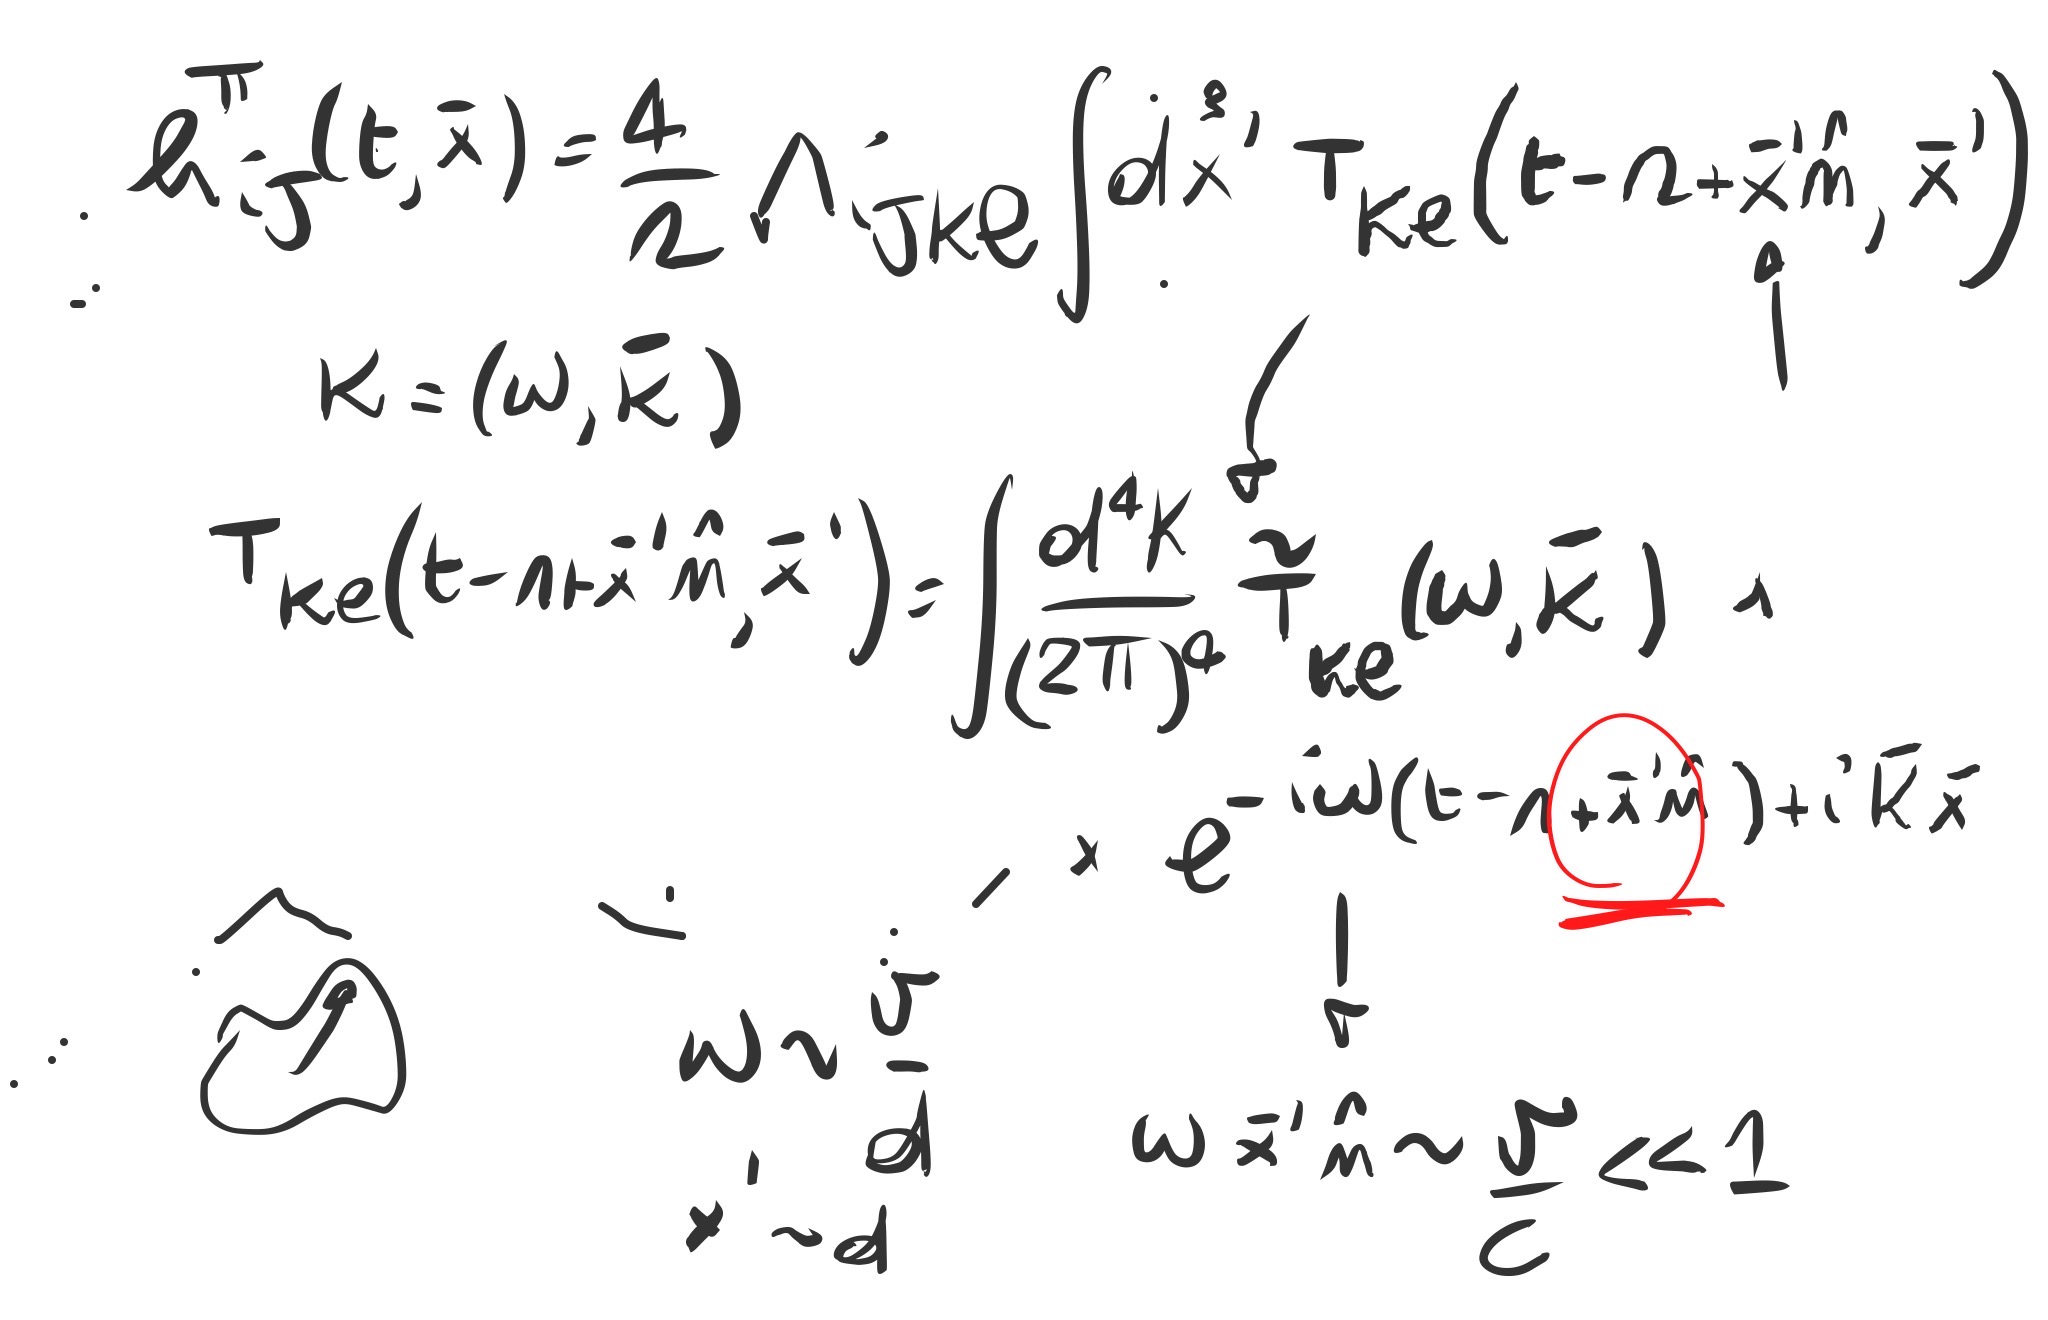 h_{ij}^{TT}(t, x̄) = 4/r Λ_{ijkl} ∫ d³x' T_{kl}(t - r + x̄' n̂, x̄')
K = (ω, k̄)
T_{kl}(t - r + x̄' n̂, x̄') = ∫ d⁴K/(2π)⁴ T̃_{kl}(ω, k̄) ×
× e^{-iω(t - r + x̄' n̂) + i k̄ x̄}
ω ~ v/d
x' ~ d
ω x̄' n̂ ~ v/c << 1